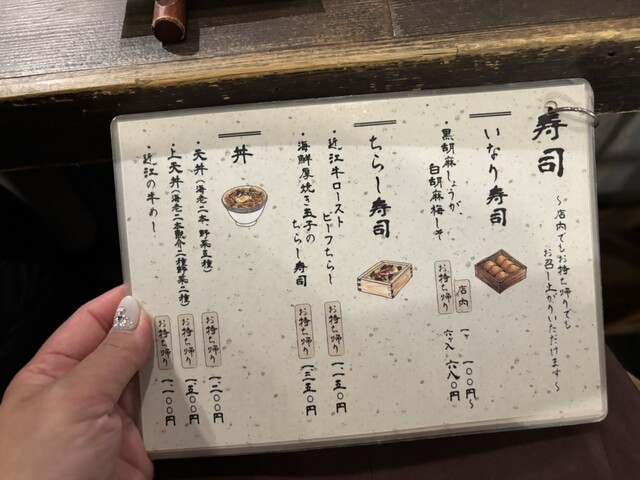 寿司
〜店内でもお持ち帰りでも
お召し上がりいただけます〜
いなり寿司
・黒胡麻しょうが、
白胡麻梅しそ
店内
一ヶ 一〇〇円〜
お持ち帰り
六ヶ入 六八〇円
ちらし寿司
・近江牛ロースト
ビーフちらし
お持ち帰り
一二五〇円
・海鮮厚焼き玉子の
ちらし寿司
お持ち帰り
一三五〇円
丼
・天丼(海老二本 野菜五種)
お持ち帰り
一二〇〇円
・上天丼(海老二本魚介二種野菜二種)
お持ち帰り
一五〇〇円
・近江の牛めし
お持ち帰り
一二〇〇円